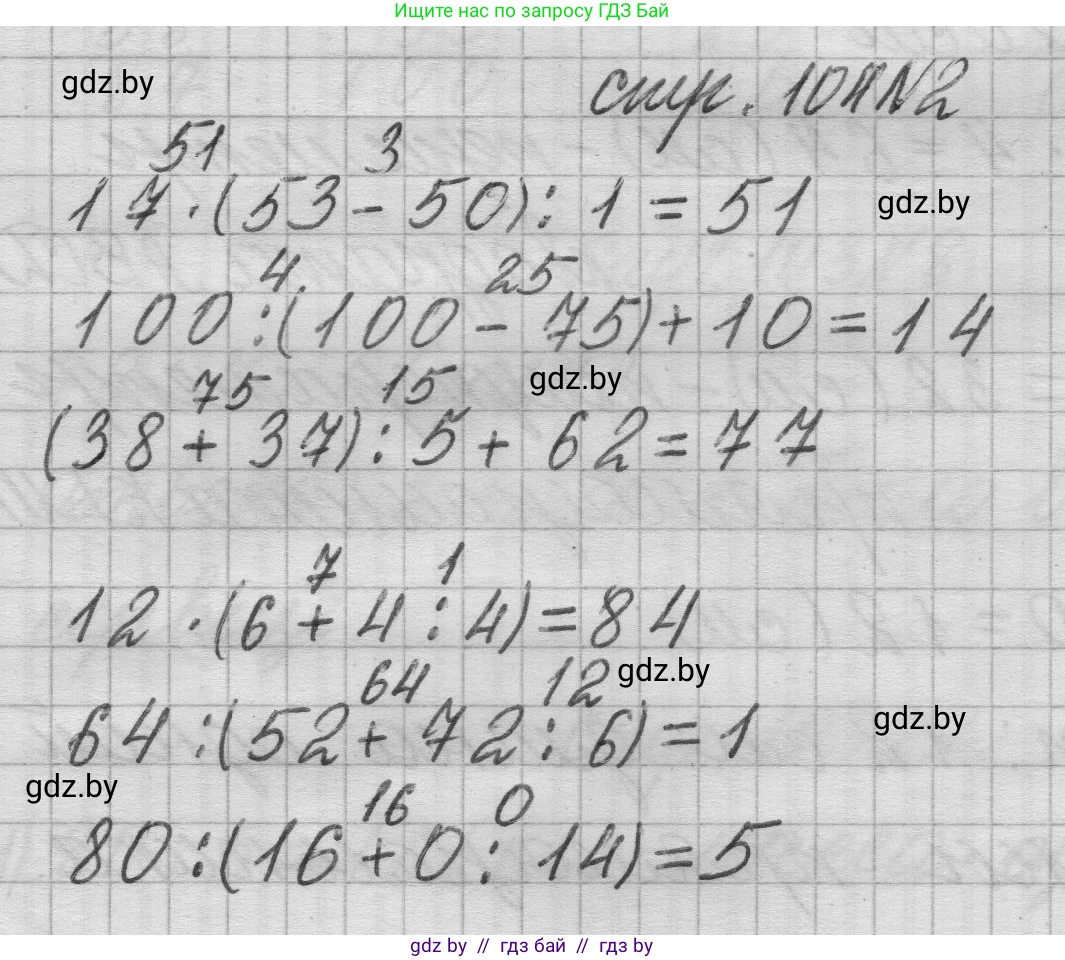 Ищите нас по запросу ГДЗ Бай
gdz.by
стр. 104 №2
51 3
17 · (53 - 50) : 1 = 51
gdz.by
4 25
100 : (100 - 75) + 10 = 14
75 15
gdz.by
(38 + 37) : 5 + 62 = 77
7 1
12 · (6 + 4 : 4) = 84
64 12
gdz.by
64 : (52 + 72 : 6) = 1
gdz.by
gdz.by
16 0
80 : (16 + 0 : 14) = 5
gdz by // гдз бай // гдз by